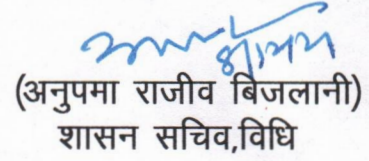 (अनुपमा राजीव बिजलानी)
शासन सचिव,विधि